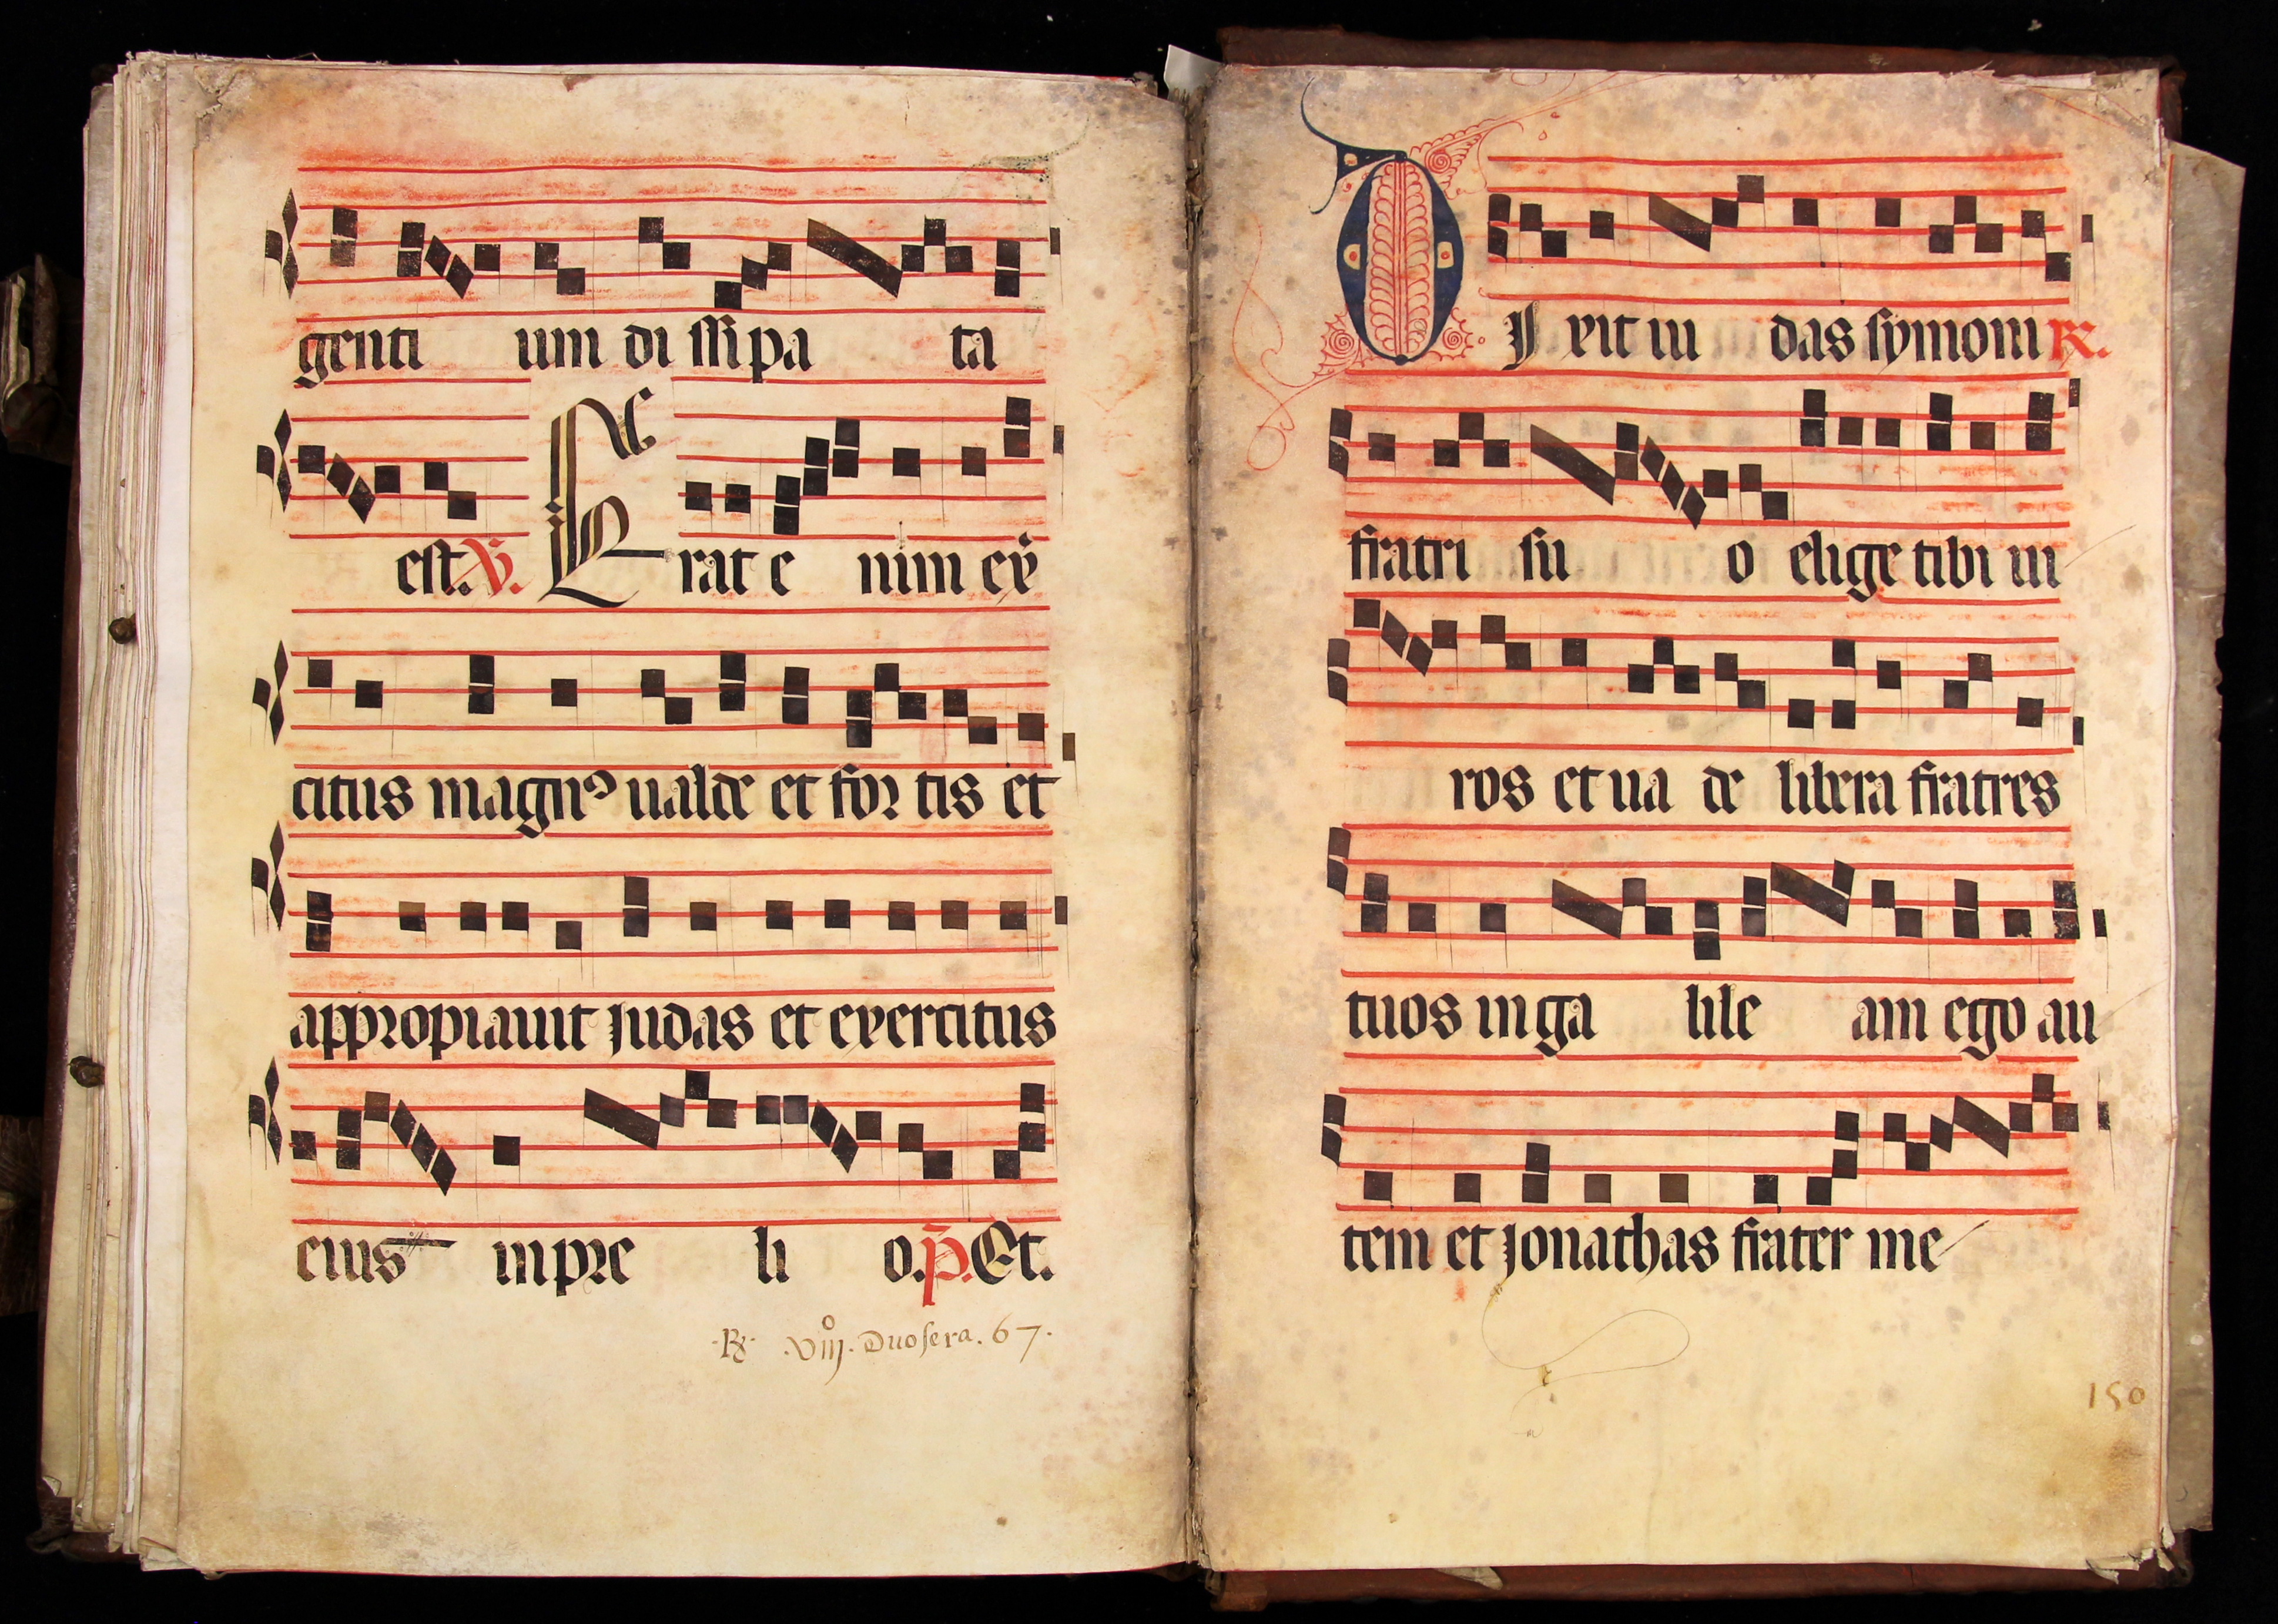 genti um di ssi pa ta
est. V. Erat e nim ex
citus magnꝰ ualde et for tis et
appropiauit Judas et exercitus
eius in pre li o. P. Et.
R. VIIIo. Duo sera. 67.
DIxit iu das symoni R.
fratri su o elige tibi ui
ros et ua de libera fratres
tuos in ga lile am ego au
tem et Jonathas frater me
150